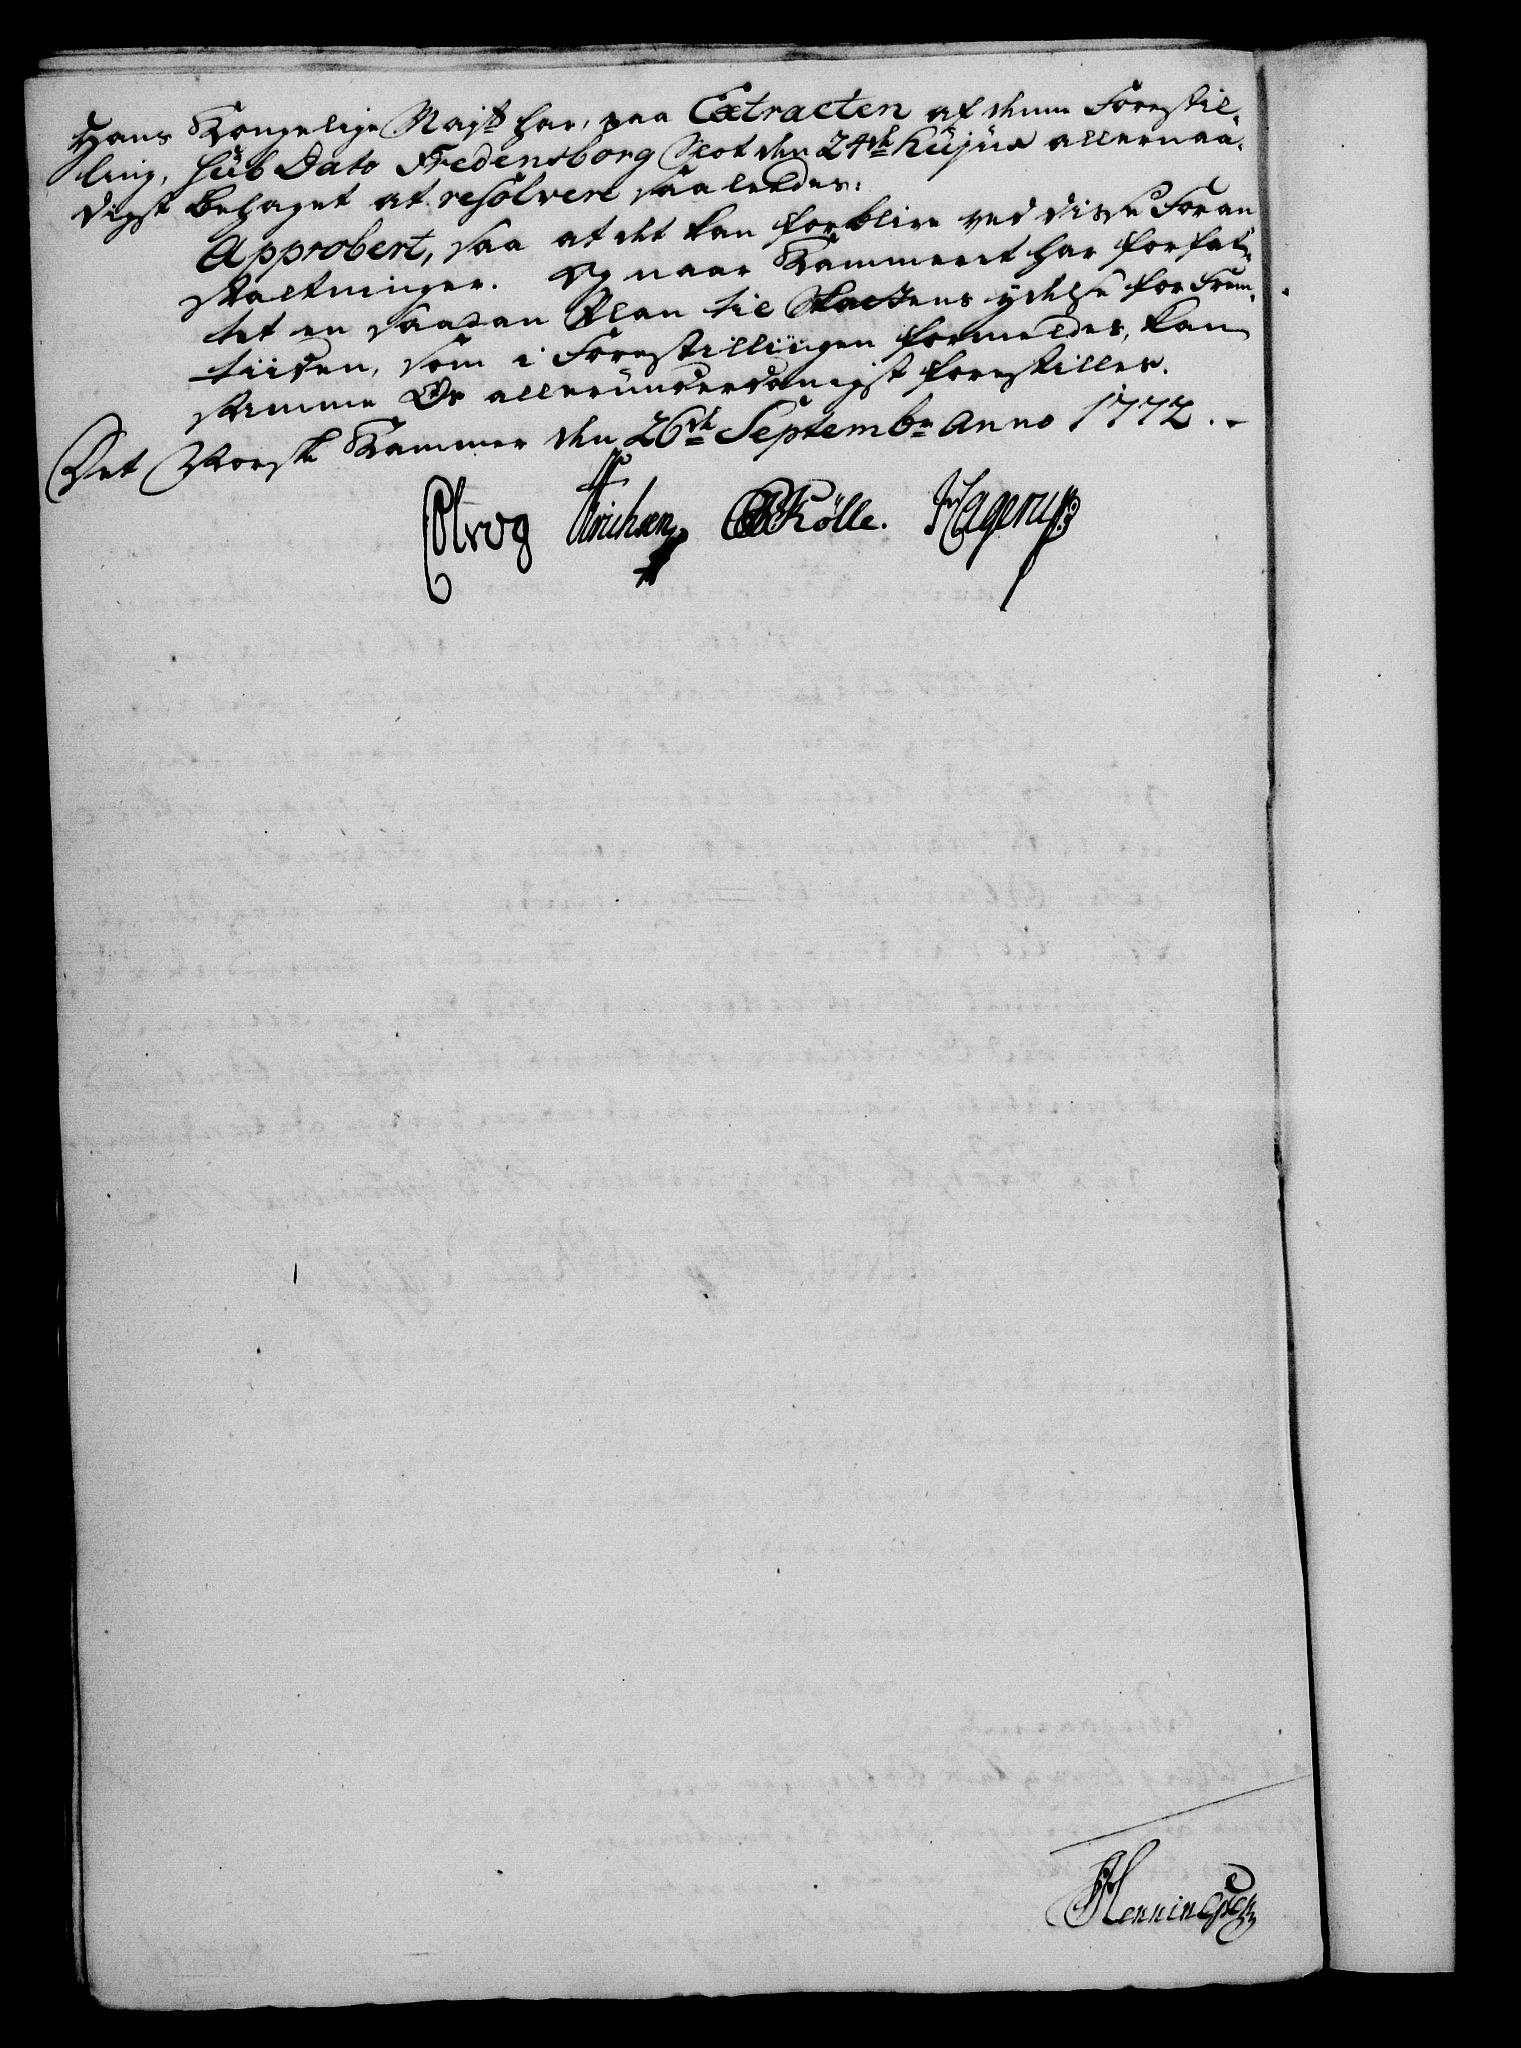 Hans Kongelige Majt: har, paa Extracten af denne Forestil-
ling, sub Dato Fredensborg Slot den 24de hujus allernaa-
digst behaget at resolvere saaledes:
Approbert, saa at det kan forblive ved disse Foran
staltninger. Og naar Kammeret har forfat-
tet en saadan Plan til Skattens ydelse for Frem-
tiiden, som i Forestillingen formeldes, kan
samme Os allerunderdanigst forestilles.
Det Norske Kammer den 26de Septembr Anno 1772.
Müllertz
Holle. Hagerup
Henningsen